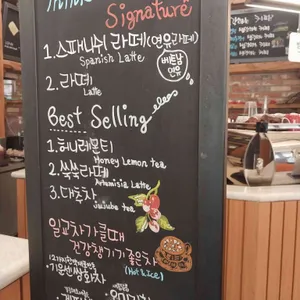 Signature
1. 스패니쉬 라떼 (연유라떼)
Spanish Latte
베트남
연유
2. 라떼
Latte
Best Selling
1. 허니레몬티
Honey Lemon tea
2. 쑥쑥라떼
Artemisia Latte
3. 대추차
Jujube tea
일교차가 클때
건강챙기기 좋은차
(Hot & Ice)